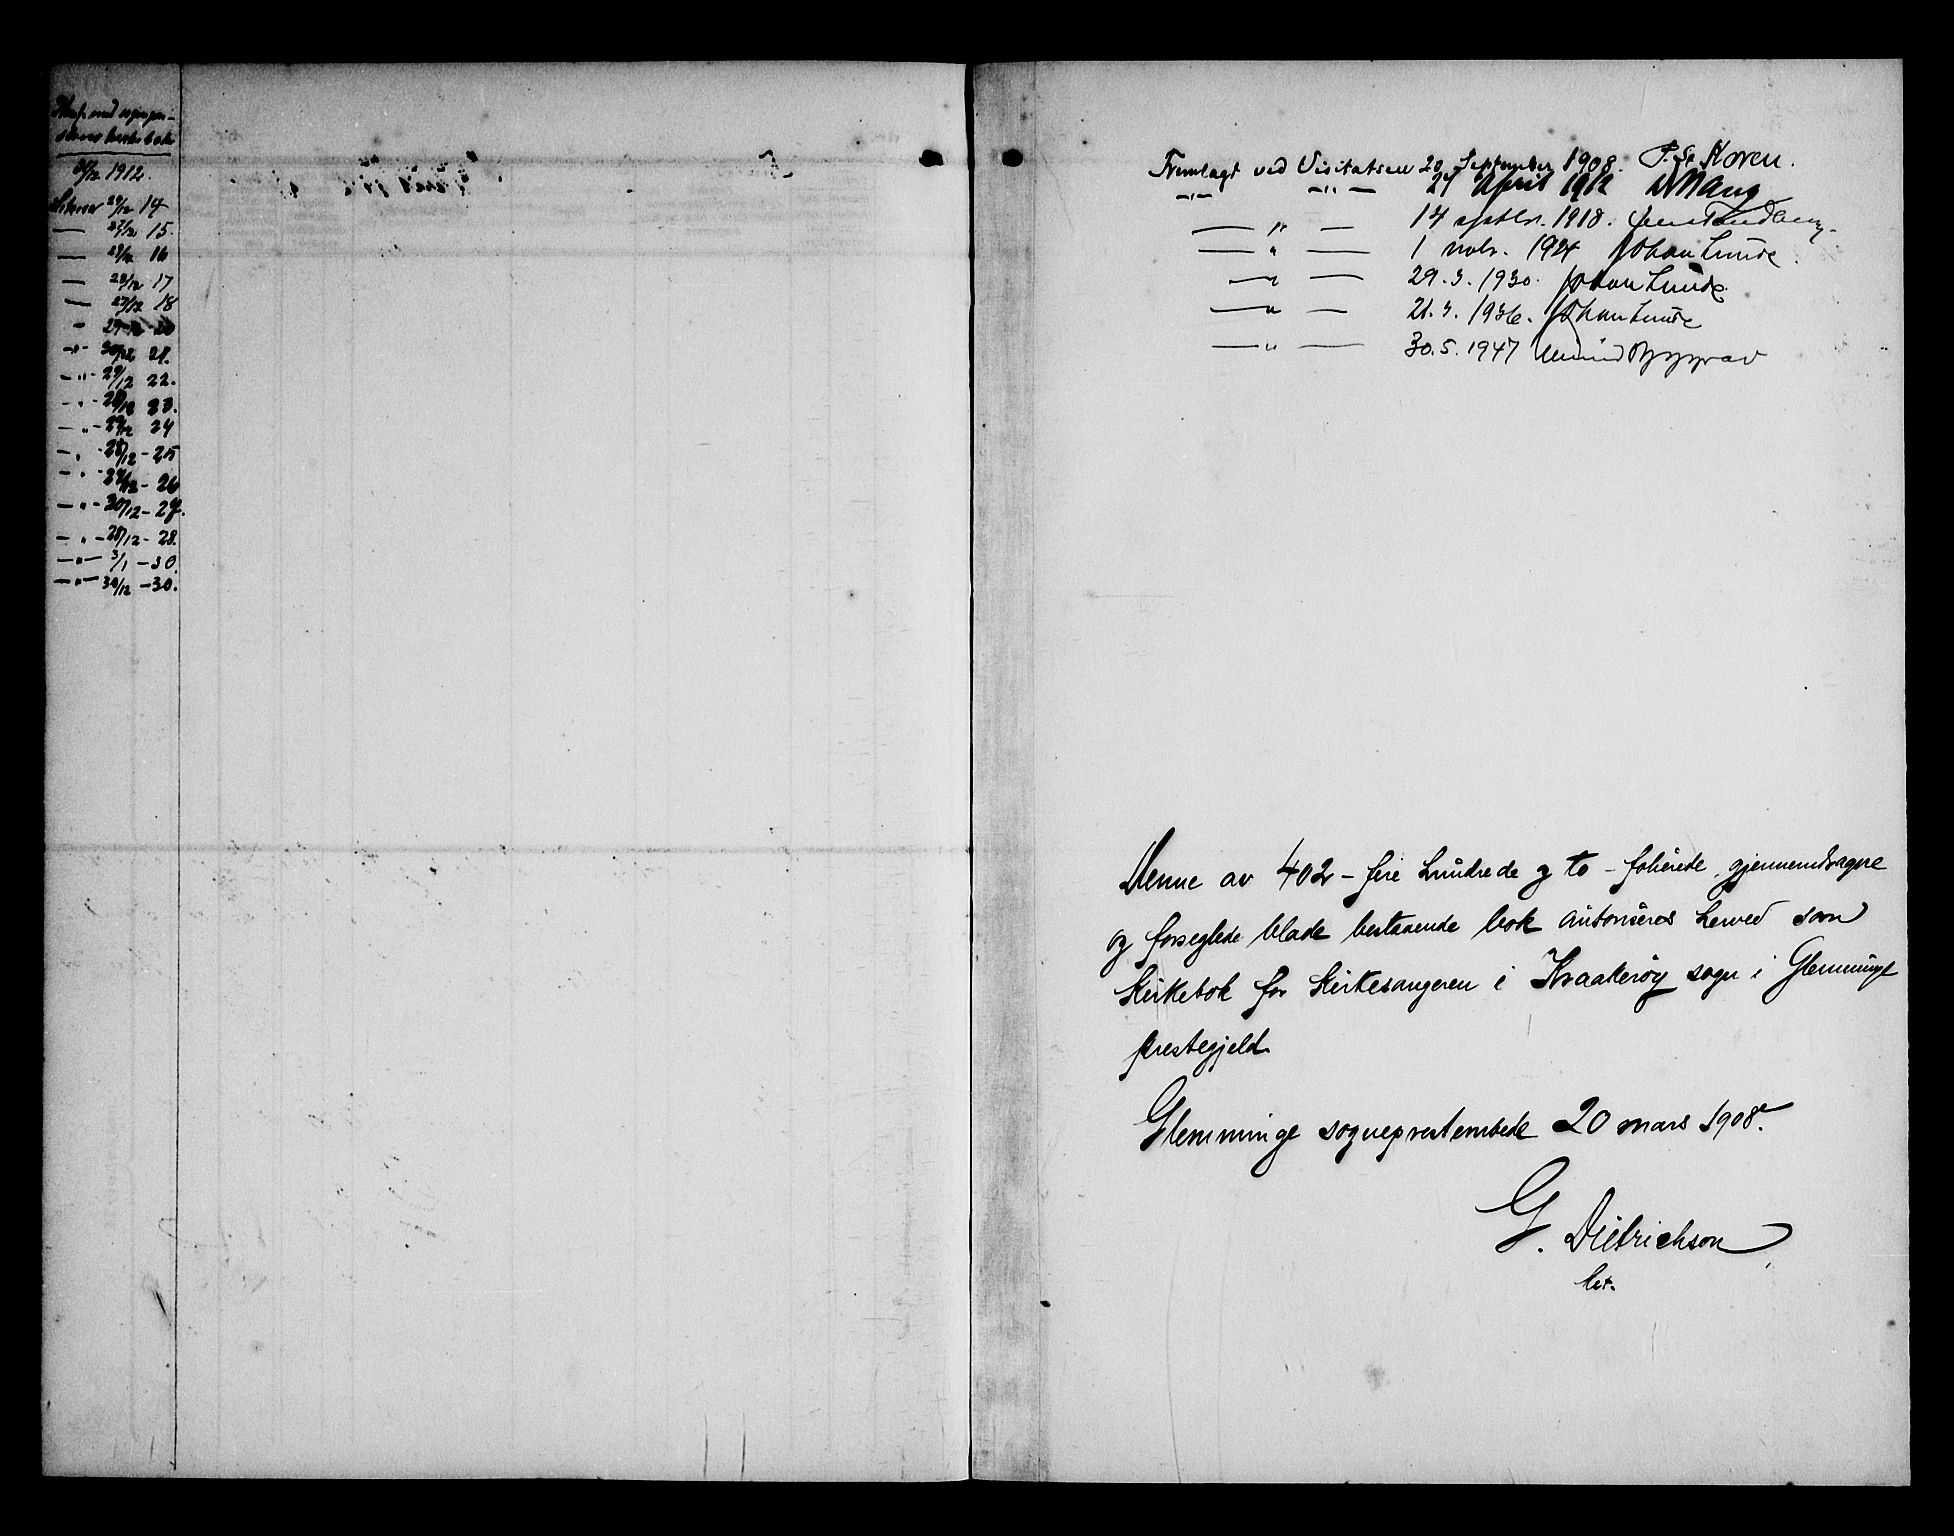 Konf. med sogneprestens kirkebok
31/12 1912.
Likesaa 29/12 14
— 27/12 15
— 29/12 16
— 28/12 17
— 27/12 18
" 29-12-20
-"- 30/12 21.
-"- 29/12 22.
-"- 28/12 23.
-"- 29/12 24
-"- 28/12 - 25
-"- 29/12 - 26
-"- 30/12 - 27.
-"- 28/12 - 28.
-"- 3/1 - 30.
-"- 30/12 - 30.
Fremlagt ved Visitatsen 20 September 1908. P. St. Koren.
-"- -"- 27 April 1912
— " — 14 septbr. 1918. Jens Tandberg.
— " — 1 novbr. 1924 Johan Lunde.
— " — 29.3.1930. Johan Lunde
— " — 21.3.1936. Johan Lunde
— " — 30.5.1947
Denne av 402 - fire hundrede og to - folierede, gjennemdragne
og forseglede blade bestaaende bok autoriseres herved som
Kirkebok for Kirkesangeren i Kraakerøy sogn i Glemminge
prestegjeld.
Glemminge sogneprestembede 20 mars 1908.
G. Dietrichson
bet.